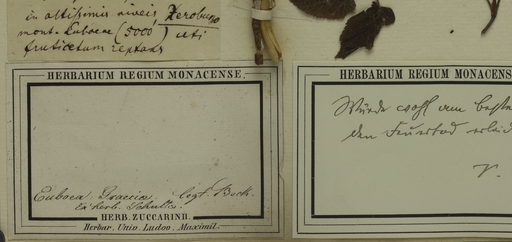 in altissimis niveis, Xerobuno
mont. Euboeae (5000') uti
fruticetum reptans
HERBARIUM REGIUM MONACENSE.
Euboea. Graecia. legt.
Ex herb. Schultz.
HERB. ZUCCARINII.
Herbar. Univ. Ludov. Maximil.
HERBARIUM REGIUM MONACENS
Würde wohl am besten
den Feuertod erleid